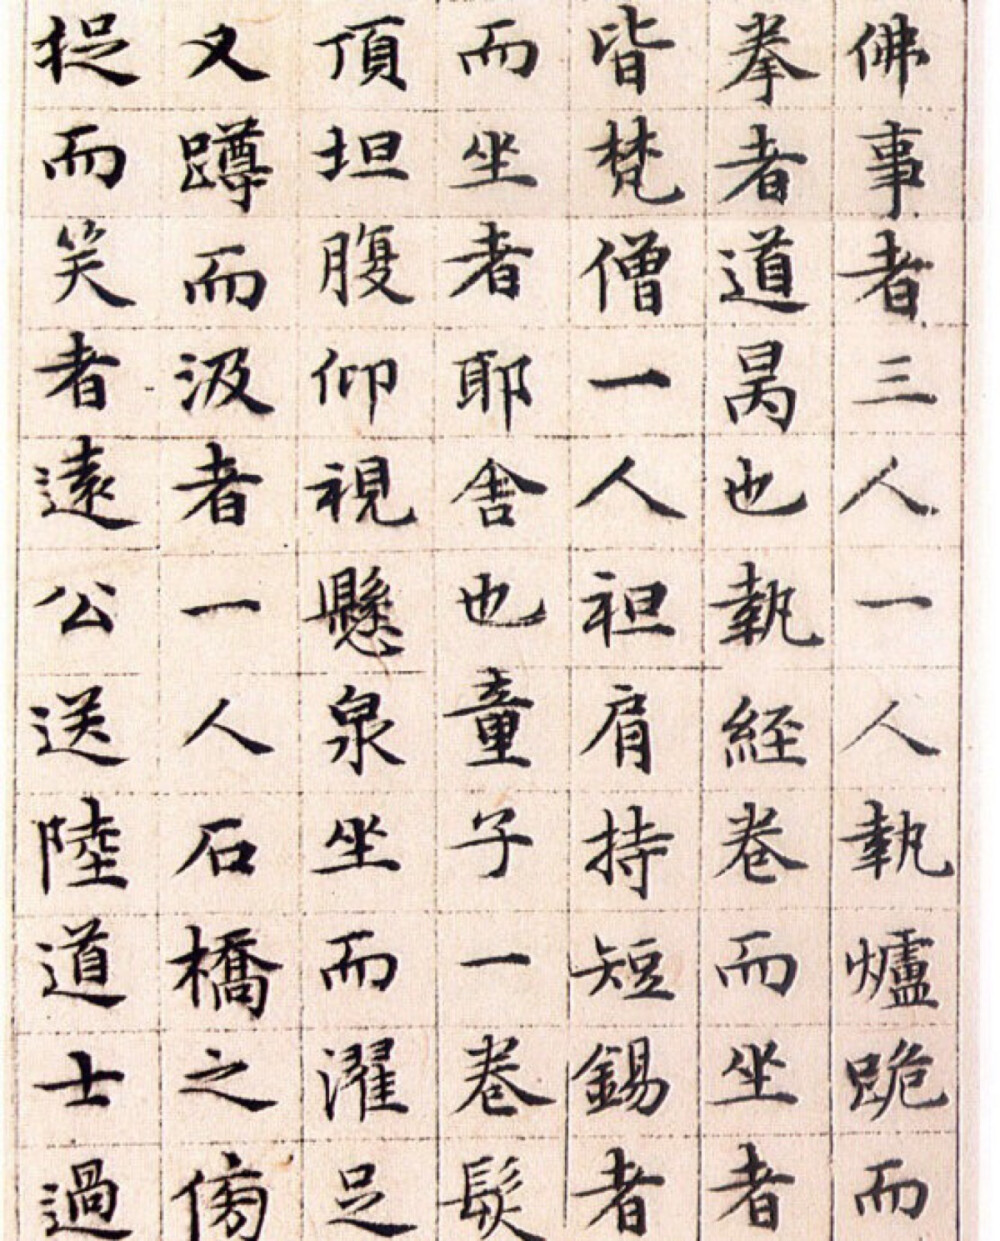 佛事者三人一人執爐跪而
拳者道昺也執經卷而坐者
皆梵僧一人袒肩持短錫者
而坐者耶舍也童子一卷髮
頂坦腹仰視懸泉坐而濯足
又蹲而汲者一人石橋之傍
捉而笑者遠公送陸道士過